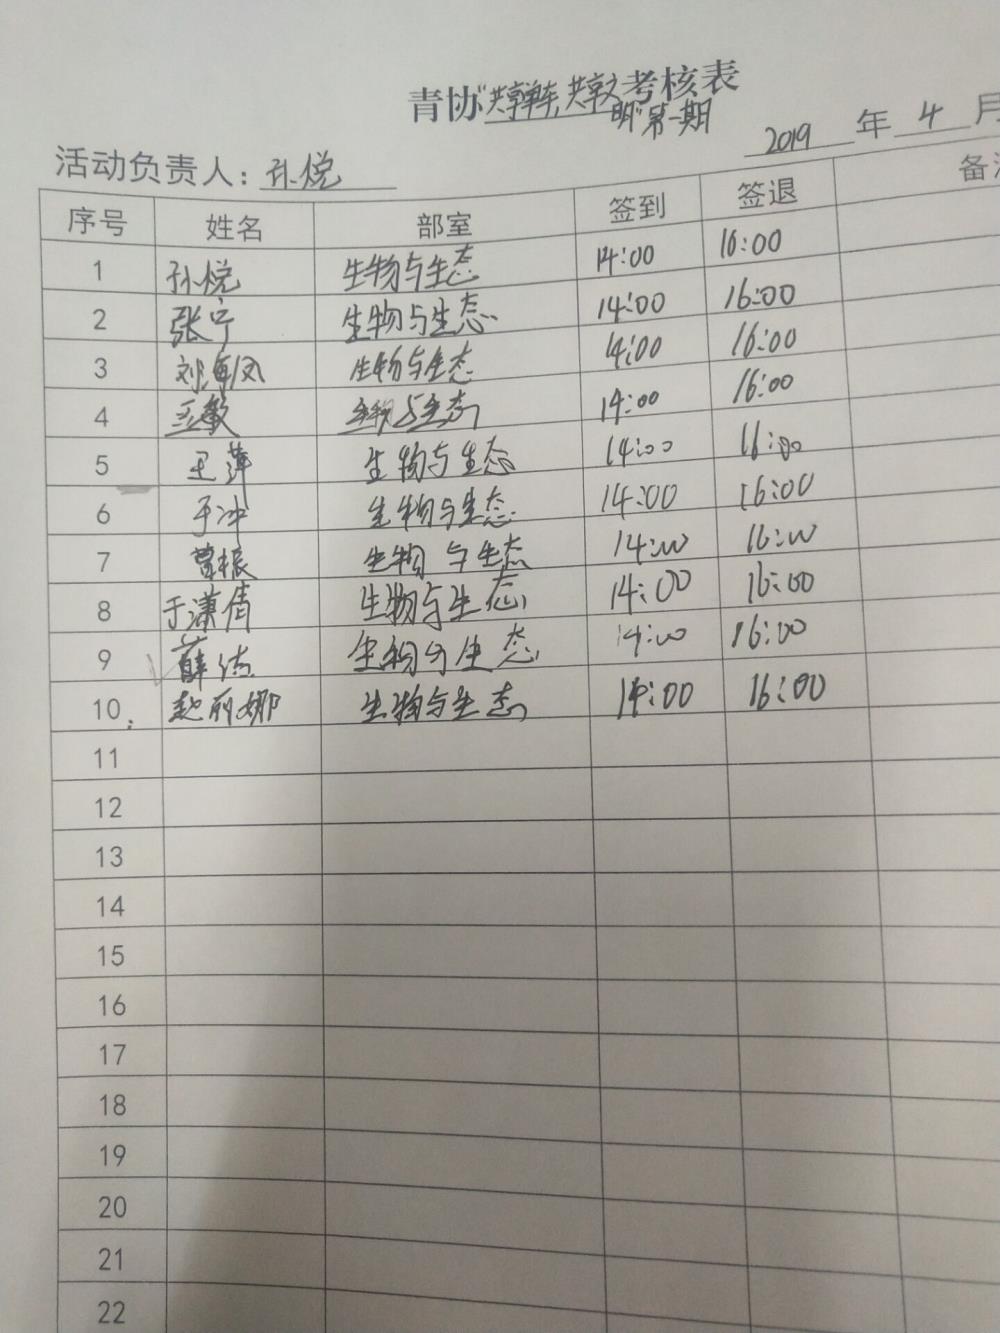 青协"共享单车,共享文考核表
明"第一期
2019 年 4 月
活动负责人: 孙悦
序号 姓名 部室 签到 签退 备
1 孙悦 生物与生态 14:00 16:00
2 张宁 生物与生态 14:00 16:00
3 刘海凤 生物与生态 14:00 16:00
4 王敏 生物与生态 14:00 16:00
5 王萍 生物与生态 14:00 16:00
6 于冲 生物与生态 14:00 16:00
7 曹振 生物与生态 14:00 16:00
8 于潇倩 生物与生态 14:00 16:00
9 薛 生物与生态 14:00 16:00
10. 赵丽娜 生物与生态 14:00 16:00
11
12
13
14
15
16
17
18
19
20
21
22